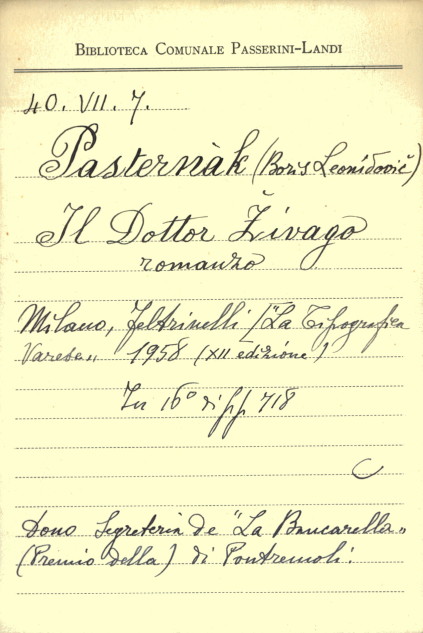 BIBLIOTECA COMUNALE PASSERINI-LANDI
40. VII. 7.
Pasternàk (Boris Leonídovič)
Il Dottor Živago
romanzo
Milano, Feltrinelli ("La Tipografica
Varese„ 1958 (XII edizione)
In 16° di pp 718
Dono Segreteria de "La Bancarella„
(Premio della) di Pontremoli.